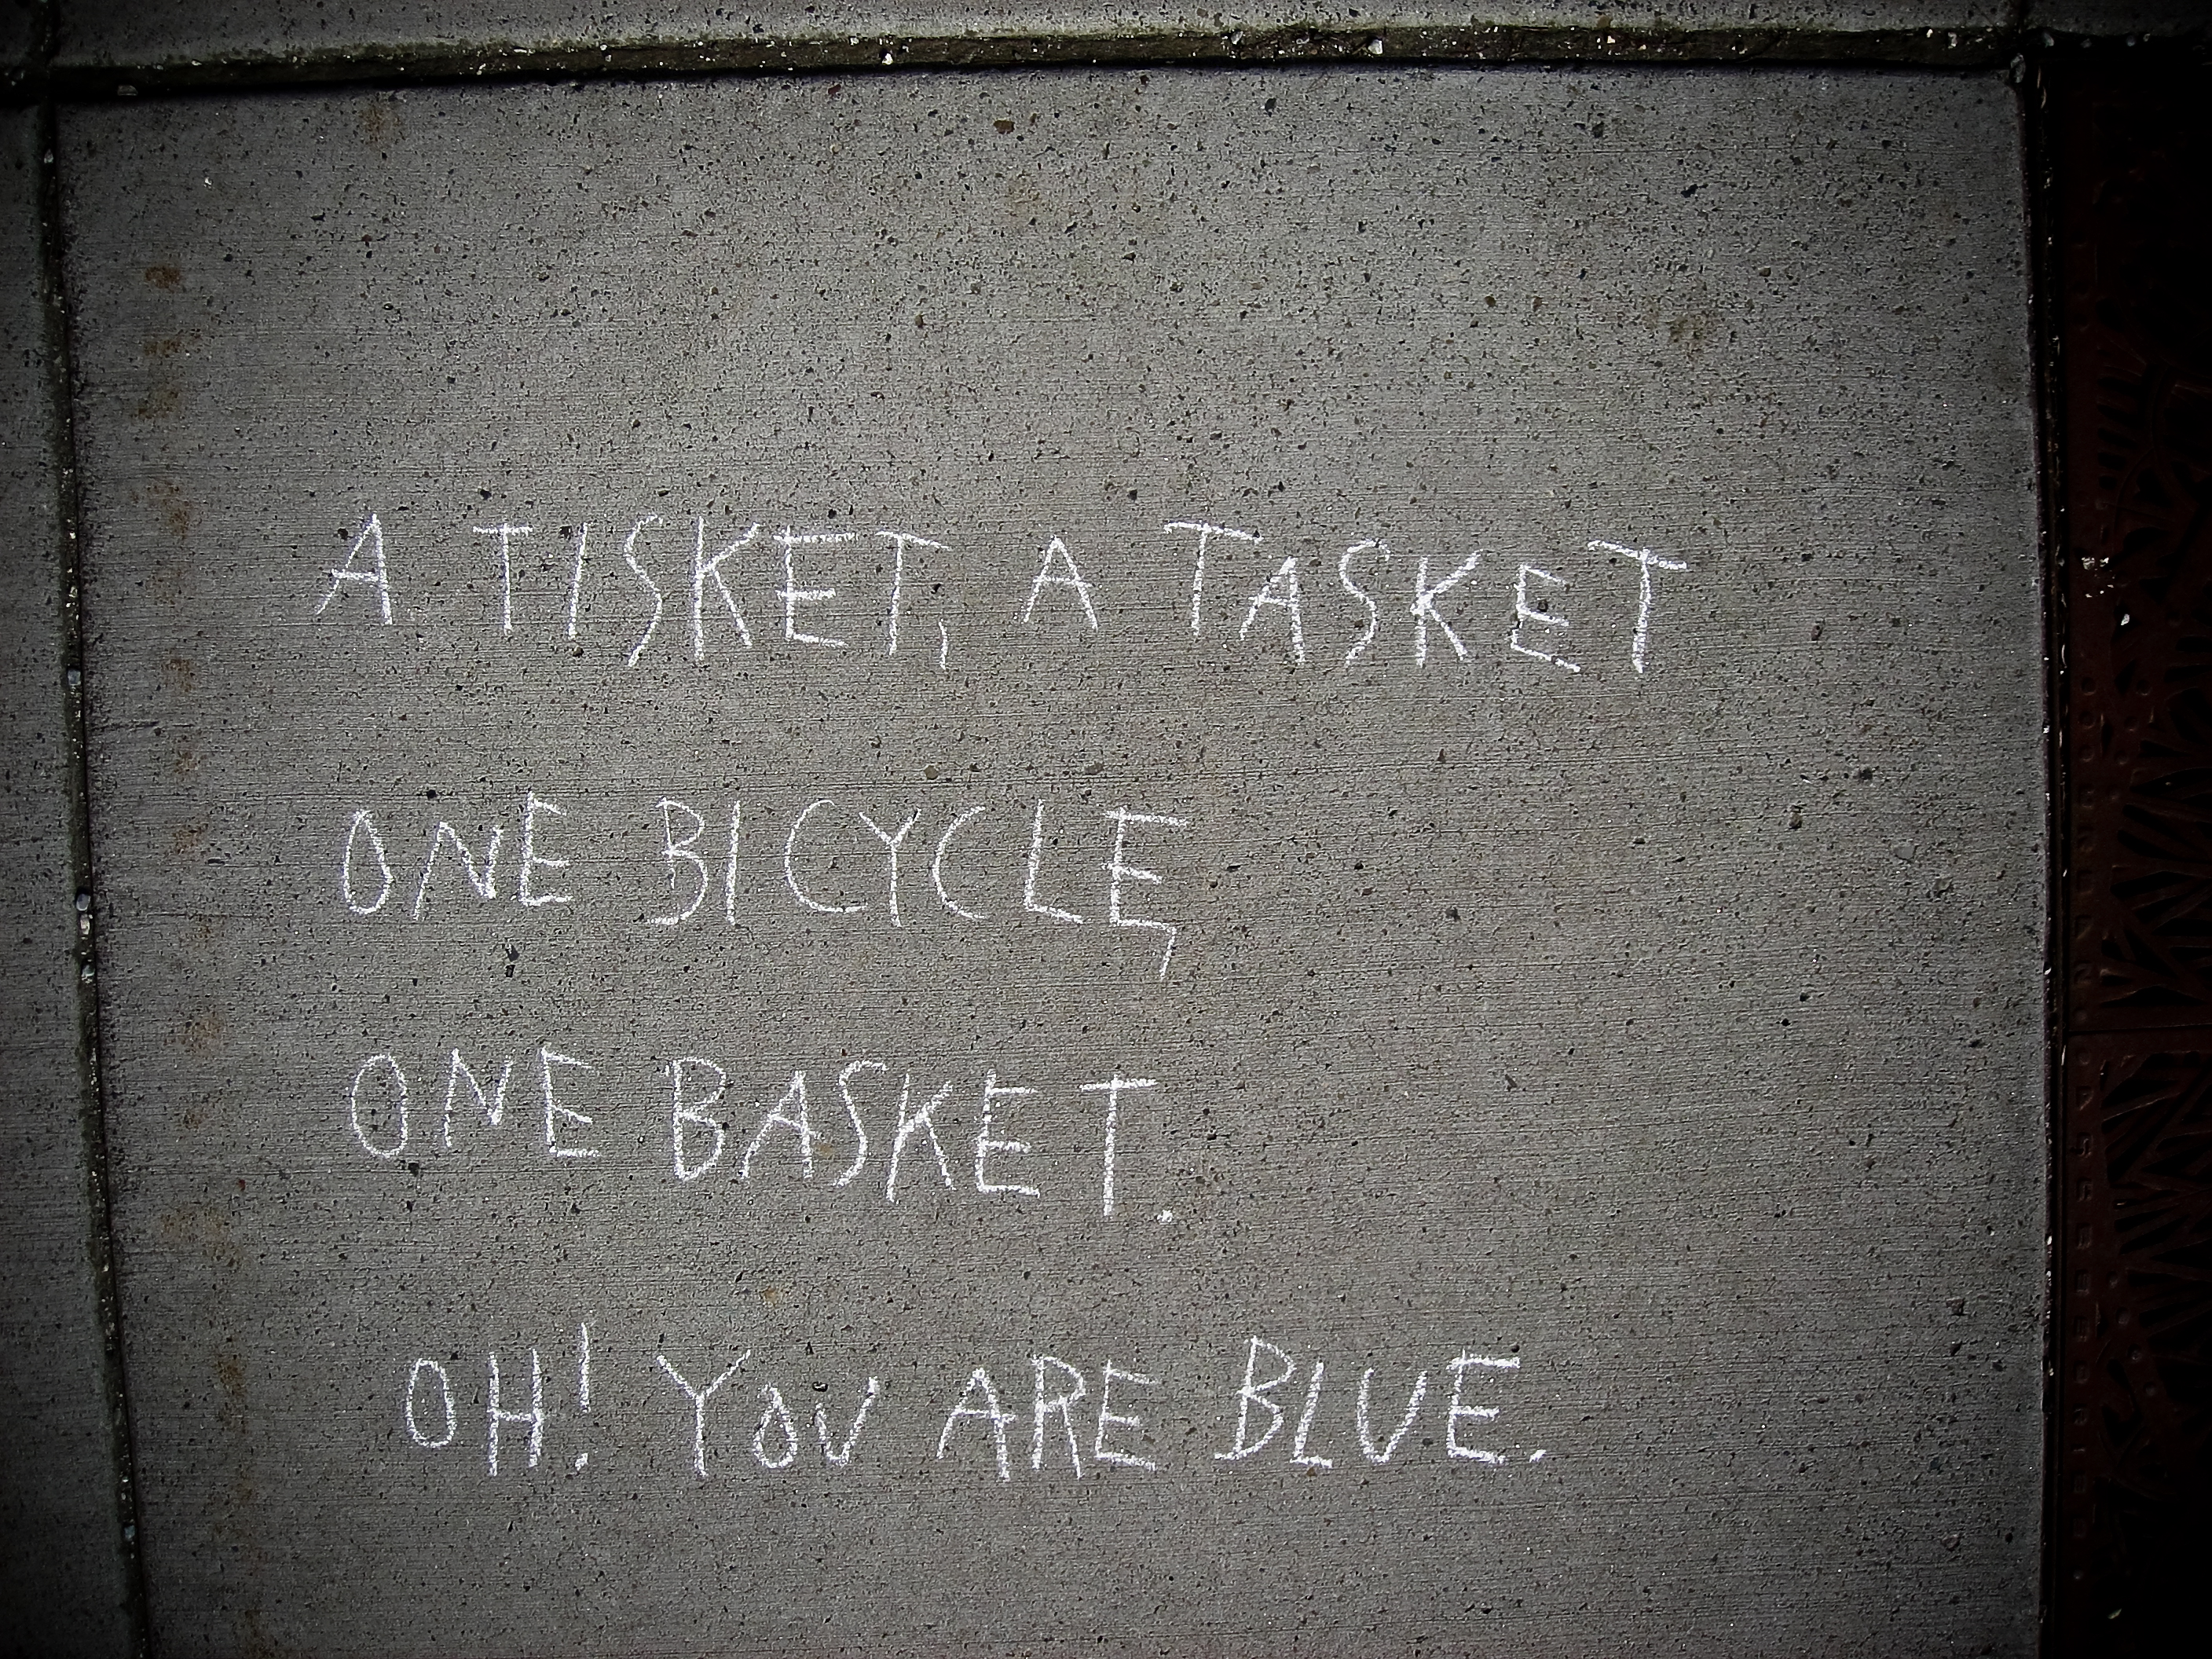 A TISKET, A TASKET
ONE BICYCLE,
ONE BASKET.
OH! YOU ARE BLUE.